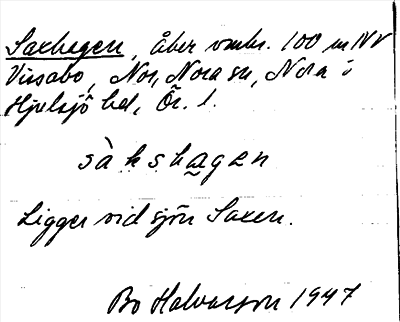 Saxhagen, åker omkr. 100 m NV
Vissabo, Nor, Nora sn, Nora i
Hjulsjö bd, Ör. l.
sàkshagen
Ligger vid sjön Saxen.
Bo Halvarson 1947